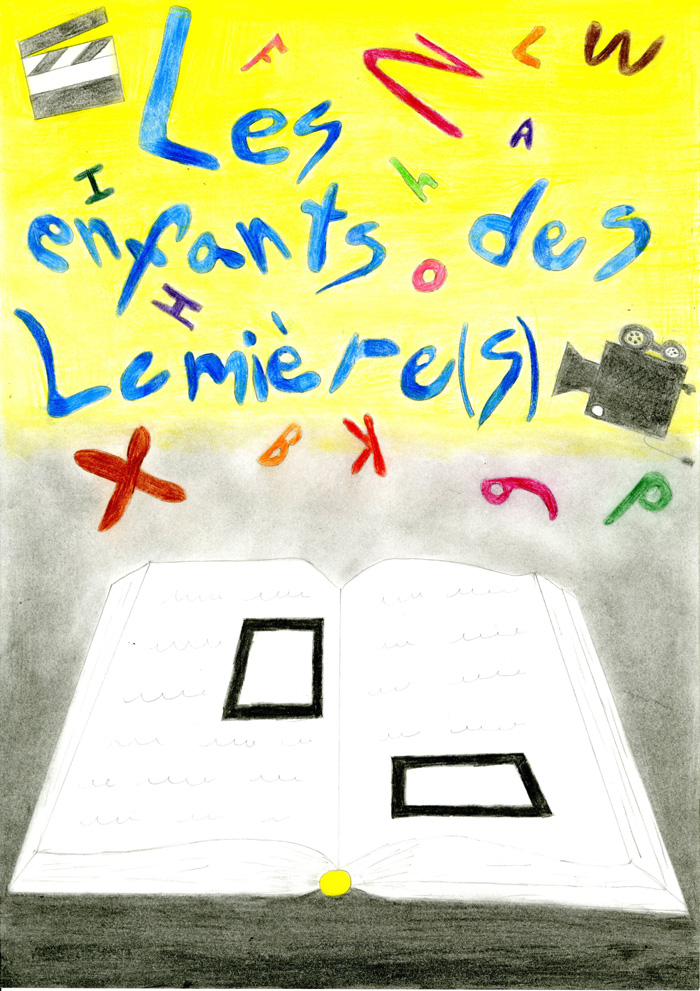 F N L W
Les
A
I h
enfants des
O
H
Lumière(s)
X B K 9 P